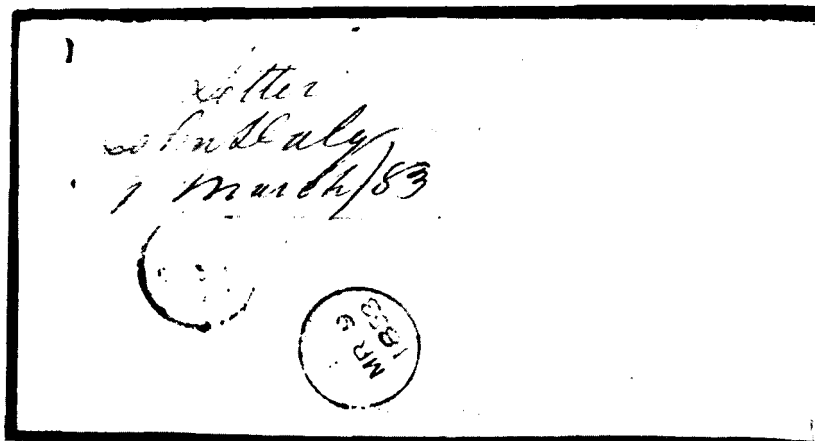 Letter
John Daly
1 March/83
MR 9
1883